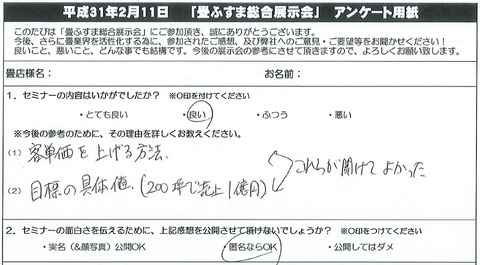 平成31年2月11日 「畳ふすま総合展示会」 アンケート用紙
このたびは「畳ふすま総合展示会」にご参加頂き、誠にありがとうございます。
今後、さらに畳業界を活性化する為に、参加されたご感想、及び弊社へのご意見・ご要望等をお聞かせください！
良いこと、悪いこと、どんな事でも結構です。今後の展示会の参考にさせて頂きますので、よろしくお願い致します。
畳店様名： お名前：
1．セミナーの内容はいかがでしたか？ ※○印を付けてください
・とても良い ・良い ・ふつう ・悪い
※今後の参考のために、その理由を詳しくお教えください。
(1) 客単価を上げる方法、
(2) 目標の具体値、（200坪で売上1億円）
これらが聞けてよかった
2．セミナーの面白さを伝えるために、上記感想を公開させて頂けないでしょうか？ ※○印をつけてください
・実名（&顔写真）公開OK ・匿名ならOK ・公開してはダメ